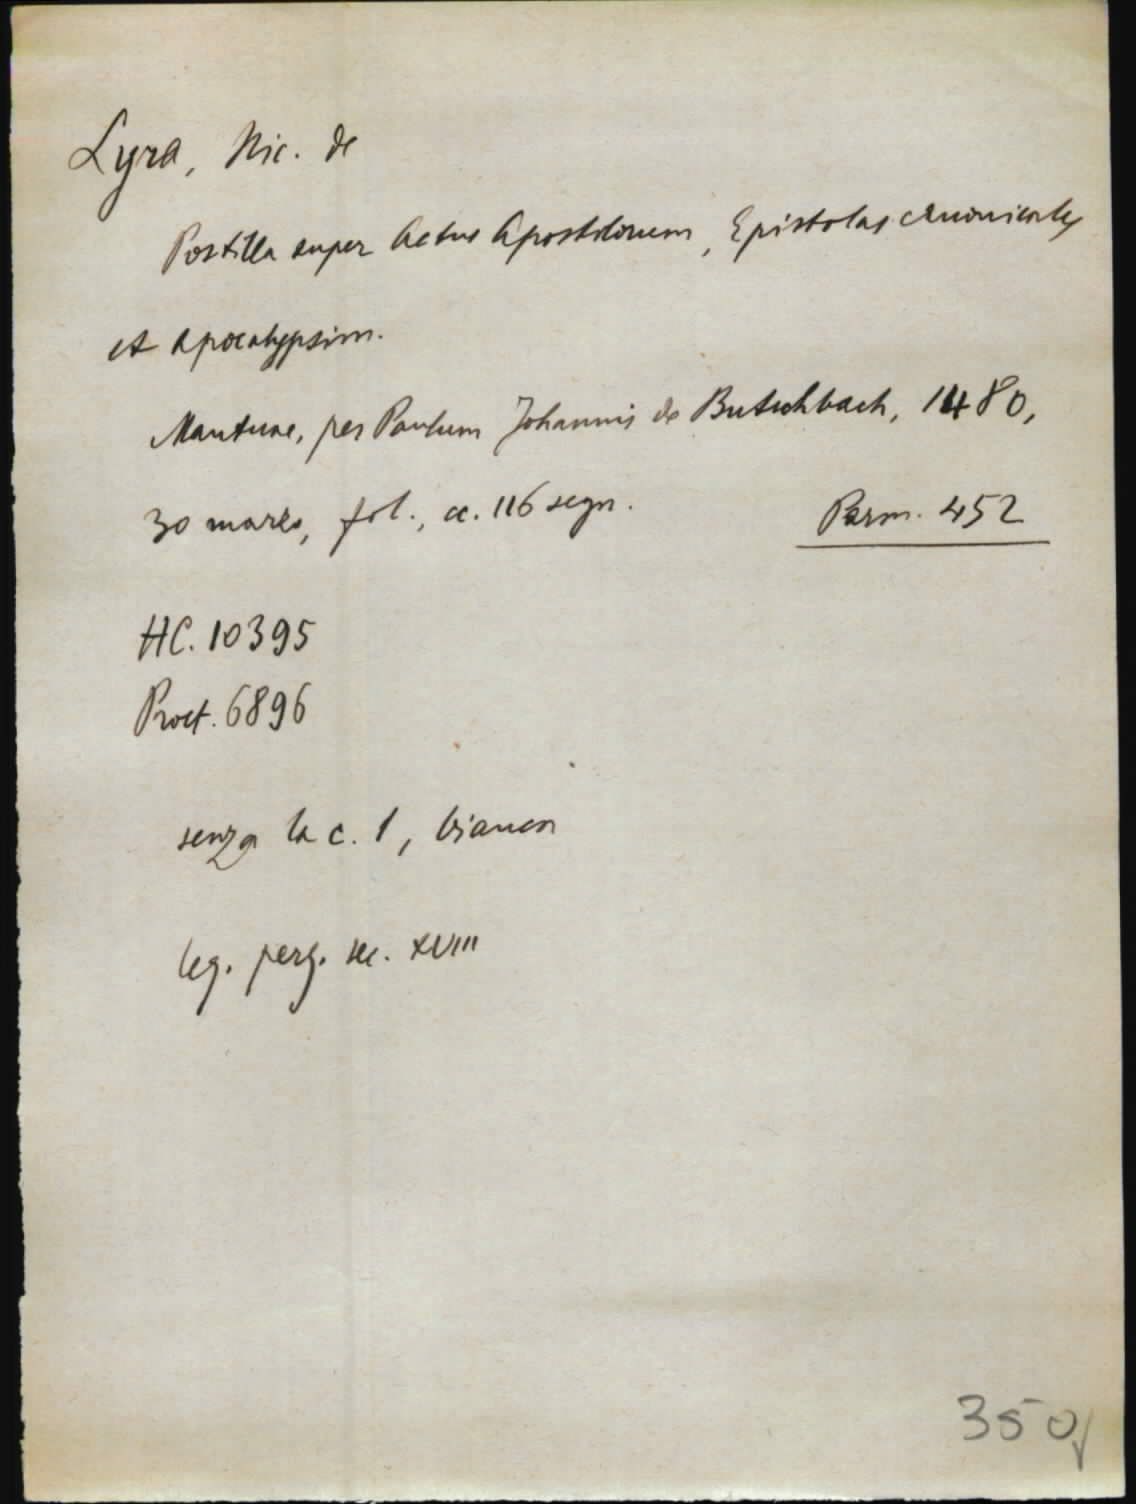 Lyra, Nic. de
Postilla super Actus Apostolorum, Epistolas canonicales
et Apocalypsim.
Mantuae, per Paulum Johannis de Butschbach, 1480,
30 marzo, fol., cc. 116 segn. Parm. 452
HC. 10395
Proct. 6896
senza la c. 1, bianca
leg. perg. sec. XVIII
350